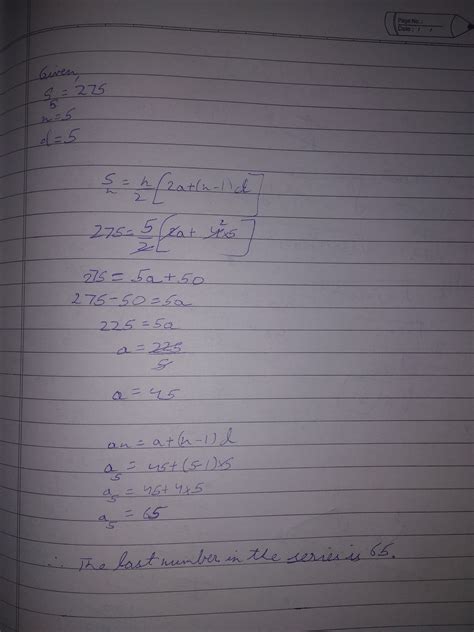 Page No.:
Date: / /
Given,
S₅ = 275
n = 5
d = 5
Sₙ = n/2 [2a+(n-1)d]
275 = 5/2 [2a + 4²×5]
275 = 5a + 50
275 - 50 = 5a
225 = 5a
a = 225/5
a = 45
an = a+(n-1)d
a₅ = 45+(5-1)×5
a₅ = 45+4×5
a₅ = 65
∴ The last number in the series is 65.